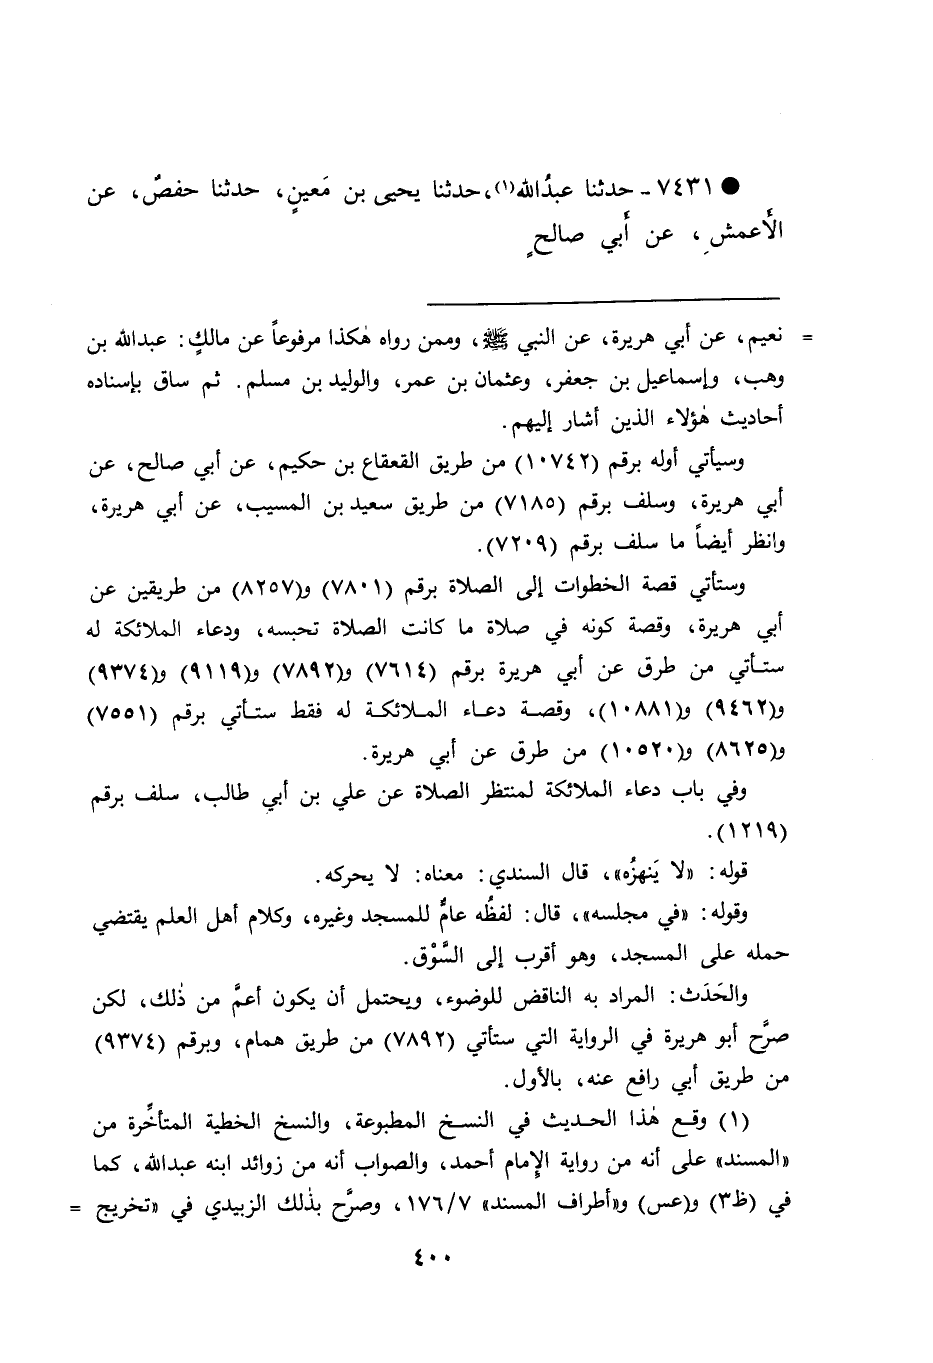 ● ٧٤٣١ - حدثنا عبدُالله(١)، حدثنا يحيى بن مَعينٍ، حدثنا حفصٌ، عن
الأَعمشِ، عن أَبي صالحٍ
= نعيم، عن أبي هريرة، عن النبي ﷺ، وممن رواه هٰكذا مرفوعاً عن مالكٍ: عبدالله بن
وهب، وإسماعيل بن جعفر، وعثمان بن عمر، والوليد بن مسلم. ثم ساق بإسناده
أحاديث هٰؤلاء الذين أشار إليهم.
وسيأتي أوله برقم (١٠٧٤٢) من طريق القعقاع بن حكيم، عن أبي صالح، عن
أبي هريرة، وسلف برقم (٧١٨٥) من طريق سعيد بن المسيب، عن أبي هريرة،
وانظر أيضاً ما سلف برقم (٧٢٠٩).
وستأتي قصة الخطوات إلى الصلاة برقم (٧٨٠١) و(٨٢٥٧) من طريقين عن
أبي هريرة، وقصة كونه في صلاة ما كانت الصلاة تحبسه، ودعاء الملائكة له
ستـأتي من طرق عن أبي هريرة برقم (٧٦١٤) و(٧٨٩٢) و(٩١١٩) و(٩٣٧٤)
و(٩٤٦٢) و(١٠٨٨١)، وقصـة دعـاء المـلائكـة له فقط ستـأتي برقم (٧٥٥١)
و(٨٦٢٥) و(١٠٥٢٠) من طرق عن أبي هريرة.
وفي باب دعاء الملائكة لمنتظر الصلاة عن علي بن أبي طالب، سلف برقم
(١٢١٩).
قوله: «لا يَنهزُه»، قال السندي: معناه: لا يحركه.
وقوله: «في مجلسه»، قال: لفظُه عامٌّ للمسجد وغيره، وكلام أهل العلم يقتضي
حمله على المسجد، وهو أقرب إلى السَّوْق.
والحَدَث: المراد به الناقض للوضوء، ويحتمل أن يكون أعمَّ من ذٰلك، لكن
صرَّح أبو هريرة في الرواية التي ستأتي (٧٨٩٢) من طريق همام، وبرقم (٩٣٧٤)
من طريق أبي رافع عنه، بالأول.
(١) وقـع هٰذا الحـديث في النسـخ المطبوعة، والنسخ الخطية المتأخِّرة من
«المسند» على أنه من رواية الإمام أحمد، والصواب أنه من زوائد ابنه عبدالله، كما
في (ظ٣) و(عس) و«أطراف المسند» ١٧٦/٧، وصرَّح بذٰلك الزبيدي في «تخريج =
٤٠٠